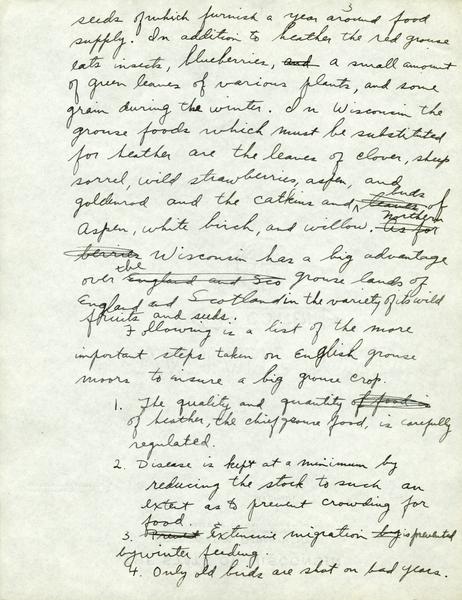 3
seeds of which furnish a year around food
supply. In addition to heather the red grouse
eats insects, blueberries, and a small amount
of green leaves of various plants, and some
grain during the winter. In Wisconsin the
grouse foods which must be substituted
for heather are the leaves of clover, sheep
sorrel, wild strawberries, aspen, and
goldenrod and the catkins and leaves buds of
Aspen, white birch, and willow. As for Northern
berries Wisconsin has a big advantage
over England and Sco the grouse lands of
England and Scotland in the variety of its wild
fruits and seeds.
Following is a list of the more
important steps taken on English grouse
moors to insure a big grouse crop.
1. The quality and quantity of food is
of heather, the chief grouse food, is carefully
regulated.
2. Disease is kept at a minimum by
reducing the stock to such an
extent as to prevent crowding for
food.
3. Prevent Extensive migration by is prevented
by winter feeding.
4. Only old birds are shot on bad years.